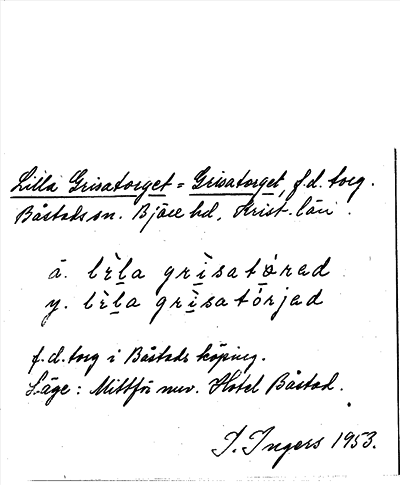 Lilla Grisatorget = Grisatorget, f.d. torg.
Båstads sn. Bjäre hd, Krist. län.
ä. lìla grìsatòrad
y. lìla grìsatórjad
f.d. torg i Båstads köping.
Läge: Mittför nuv. Hotel Båstad.
I. Ingers 1953.